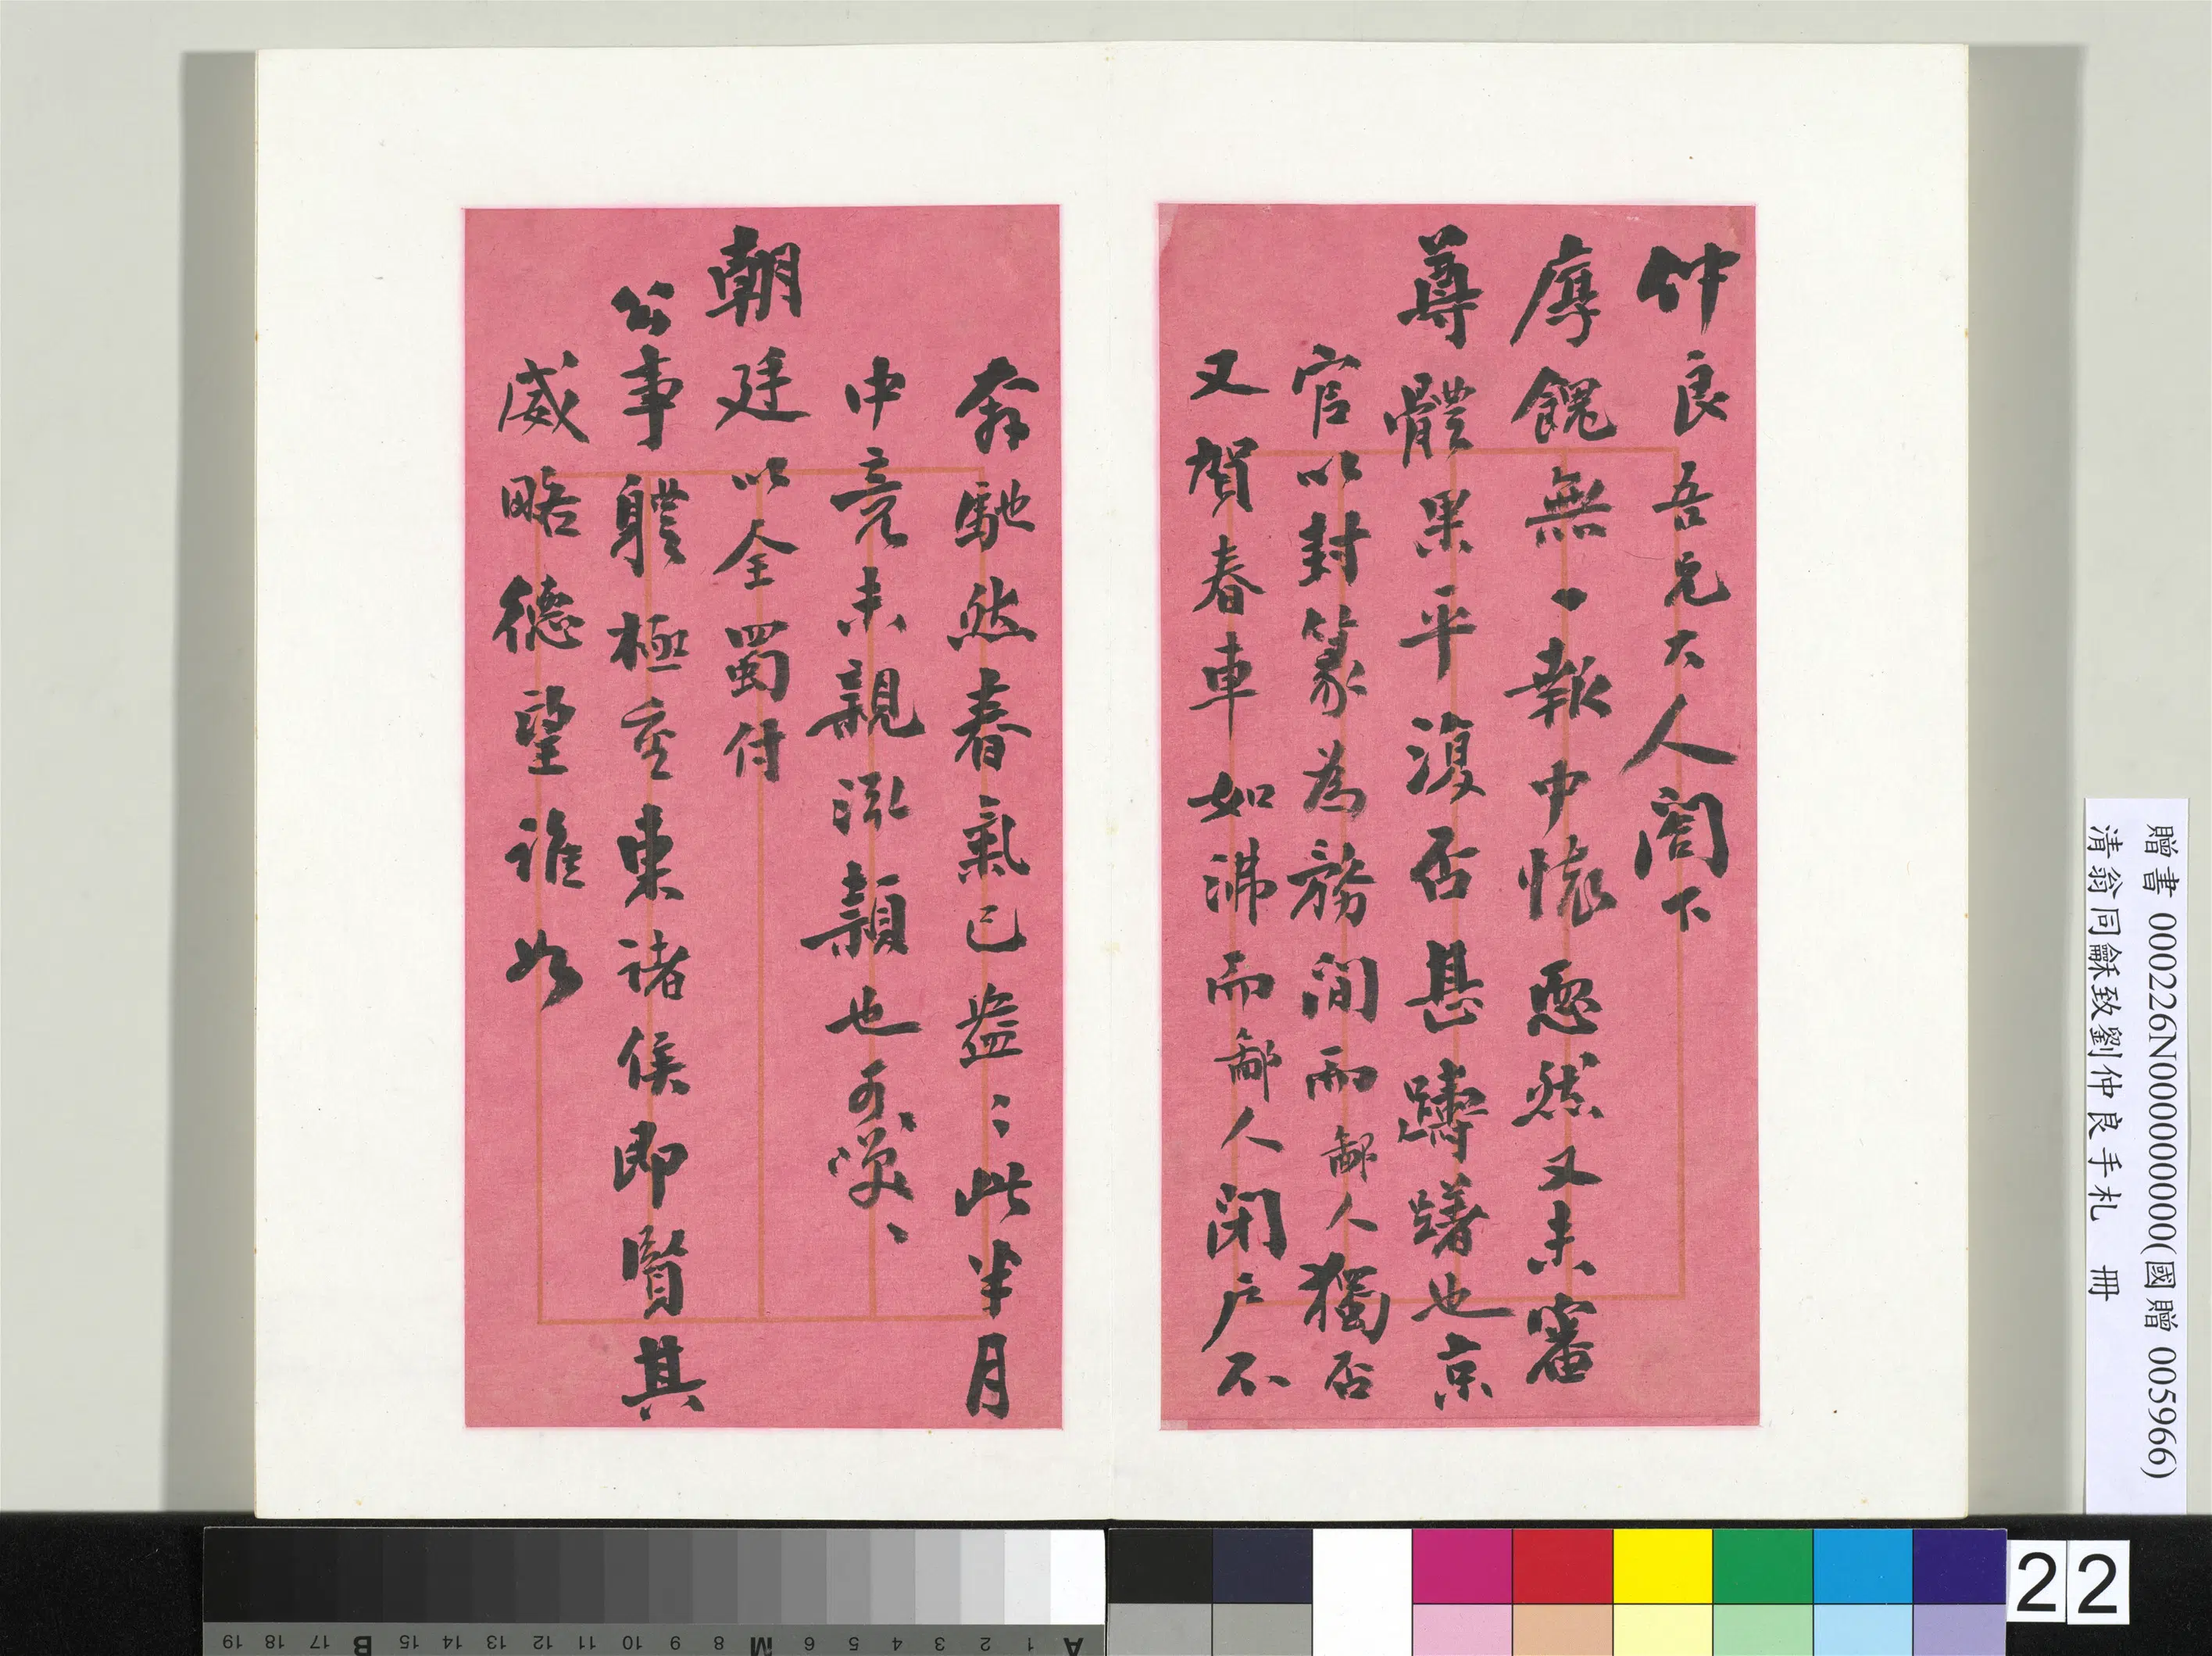 仲良吾兄大人閣下
厚餽無一報中懷恧然又未審
尊體果平復否甚躊躇也京
官以封篆為務閒而鄙人獨否
又賀春車如沸而鄙人閉戶不
奔馳然春氣已盎〻此半月
中竟未親泓穎也可〻咲〻
朝廷以全蜀付
公事軆極重東諸侯即賢其
威略德望誰如
贈書 000226N000000000(國贈 005966)
清翁同龢致劉仲良手札 冊
22
A 1 2 3 4 5 6 M 8 9 10 11 12 13 14 15 B 17 18 19